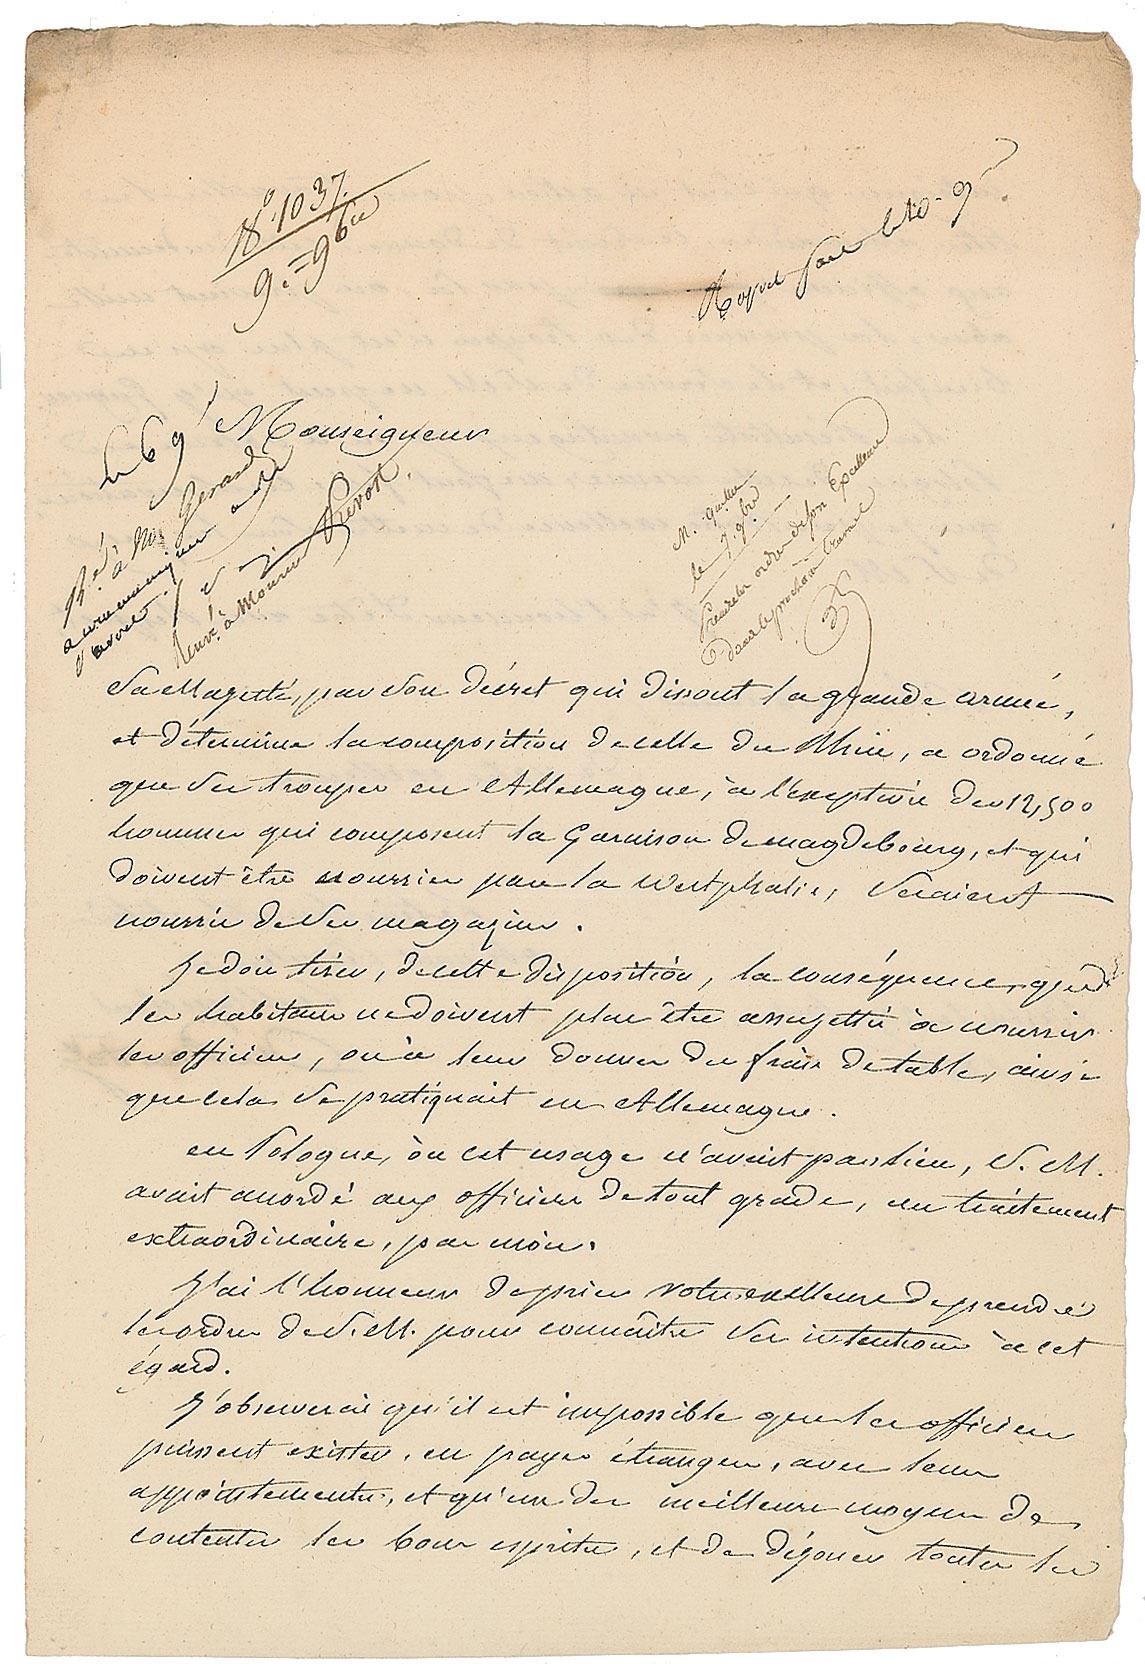 N.° 1037.
9.= 9bre
Le 6 9
Monseigneur
Rd. à M. Gerard
Renv. à Monsieur Prevost.
M. 
le 7. 9bre
Prendre les ordres de Son Excellence
dans le prochain travail
Sa Majesté, par son décret qui dissout la grande armée,
et détermine la composition de celle du Rhin, a ordonné
que ses troupes en Allemagne, à l'exception des 12,500
hommes qui composent la Garnison de magdebourg, et qui
doivent être nourries par la Westphalie, seraient
nourries de ses magazins.
Je dois tirer, de cette disposition, la conséquence, que
les habitans ne doivent plus être assujettis à nourrir
les officiers, ou à leur donner des frais de table, ainsi
que cela se pratiquait en Allemagne.
en Pologne, où cet usage n'avait pas lieu, S. M.
avait accordé aux officiers de tout grade, un traitement
extraordinaire, par mois.
J'ai l'honneur de prier votre excellence de prendre
les ordres de S. M. pour connaître ses intentions à cet
égard.
J'observerai qu'il est impossible que les officiers
puissent exister, en payes étrangers, avec leurs
appointements, et qu'un des meilleurs moyens de
contenter les bons esprits, et de déjouer toutes les